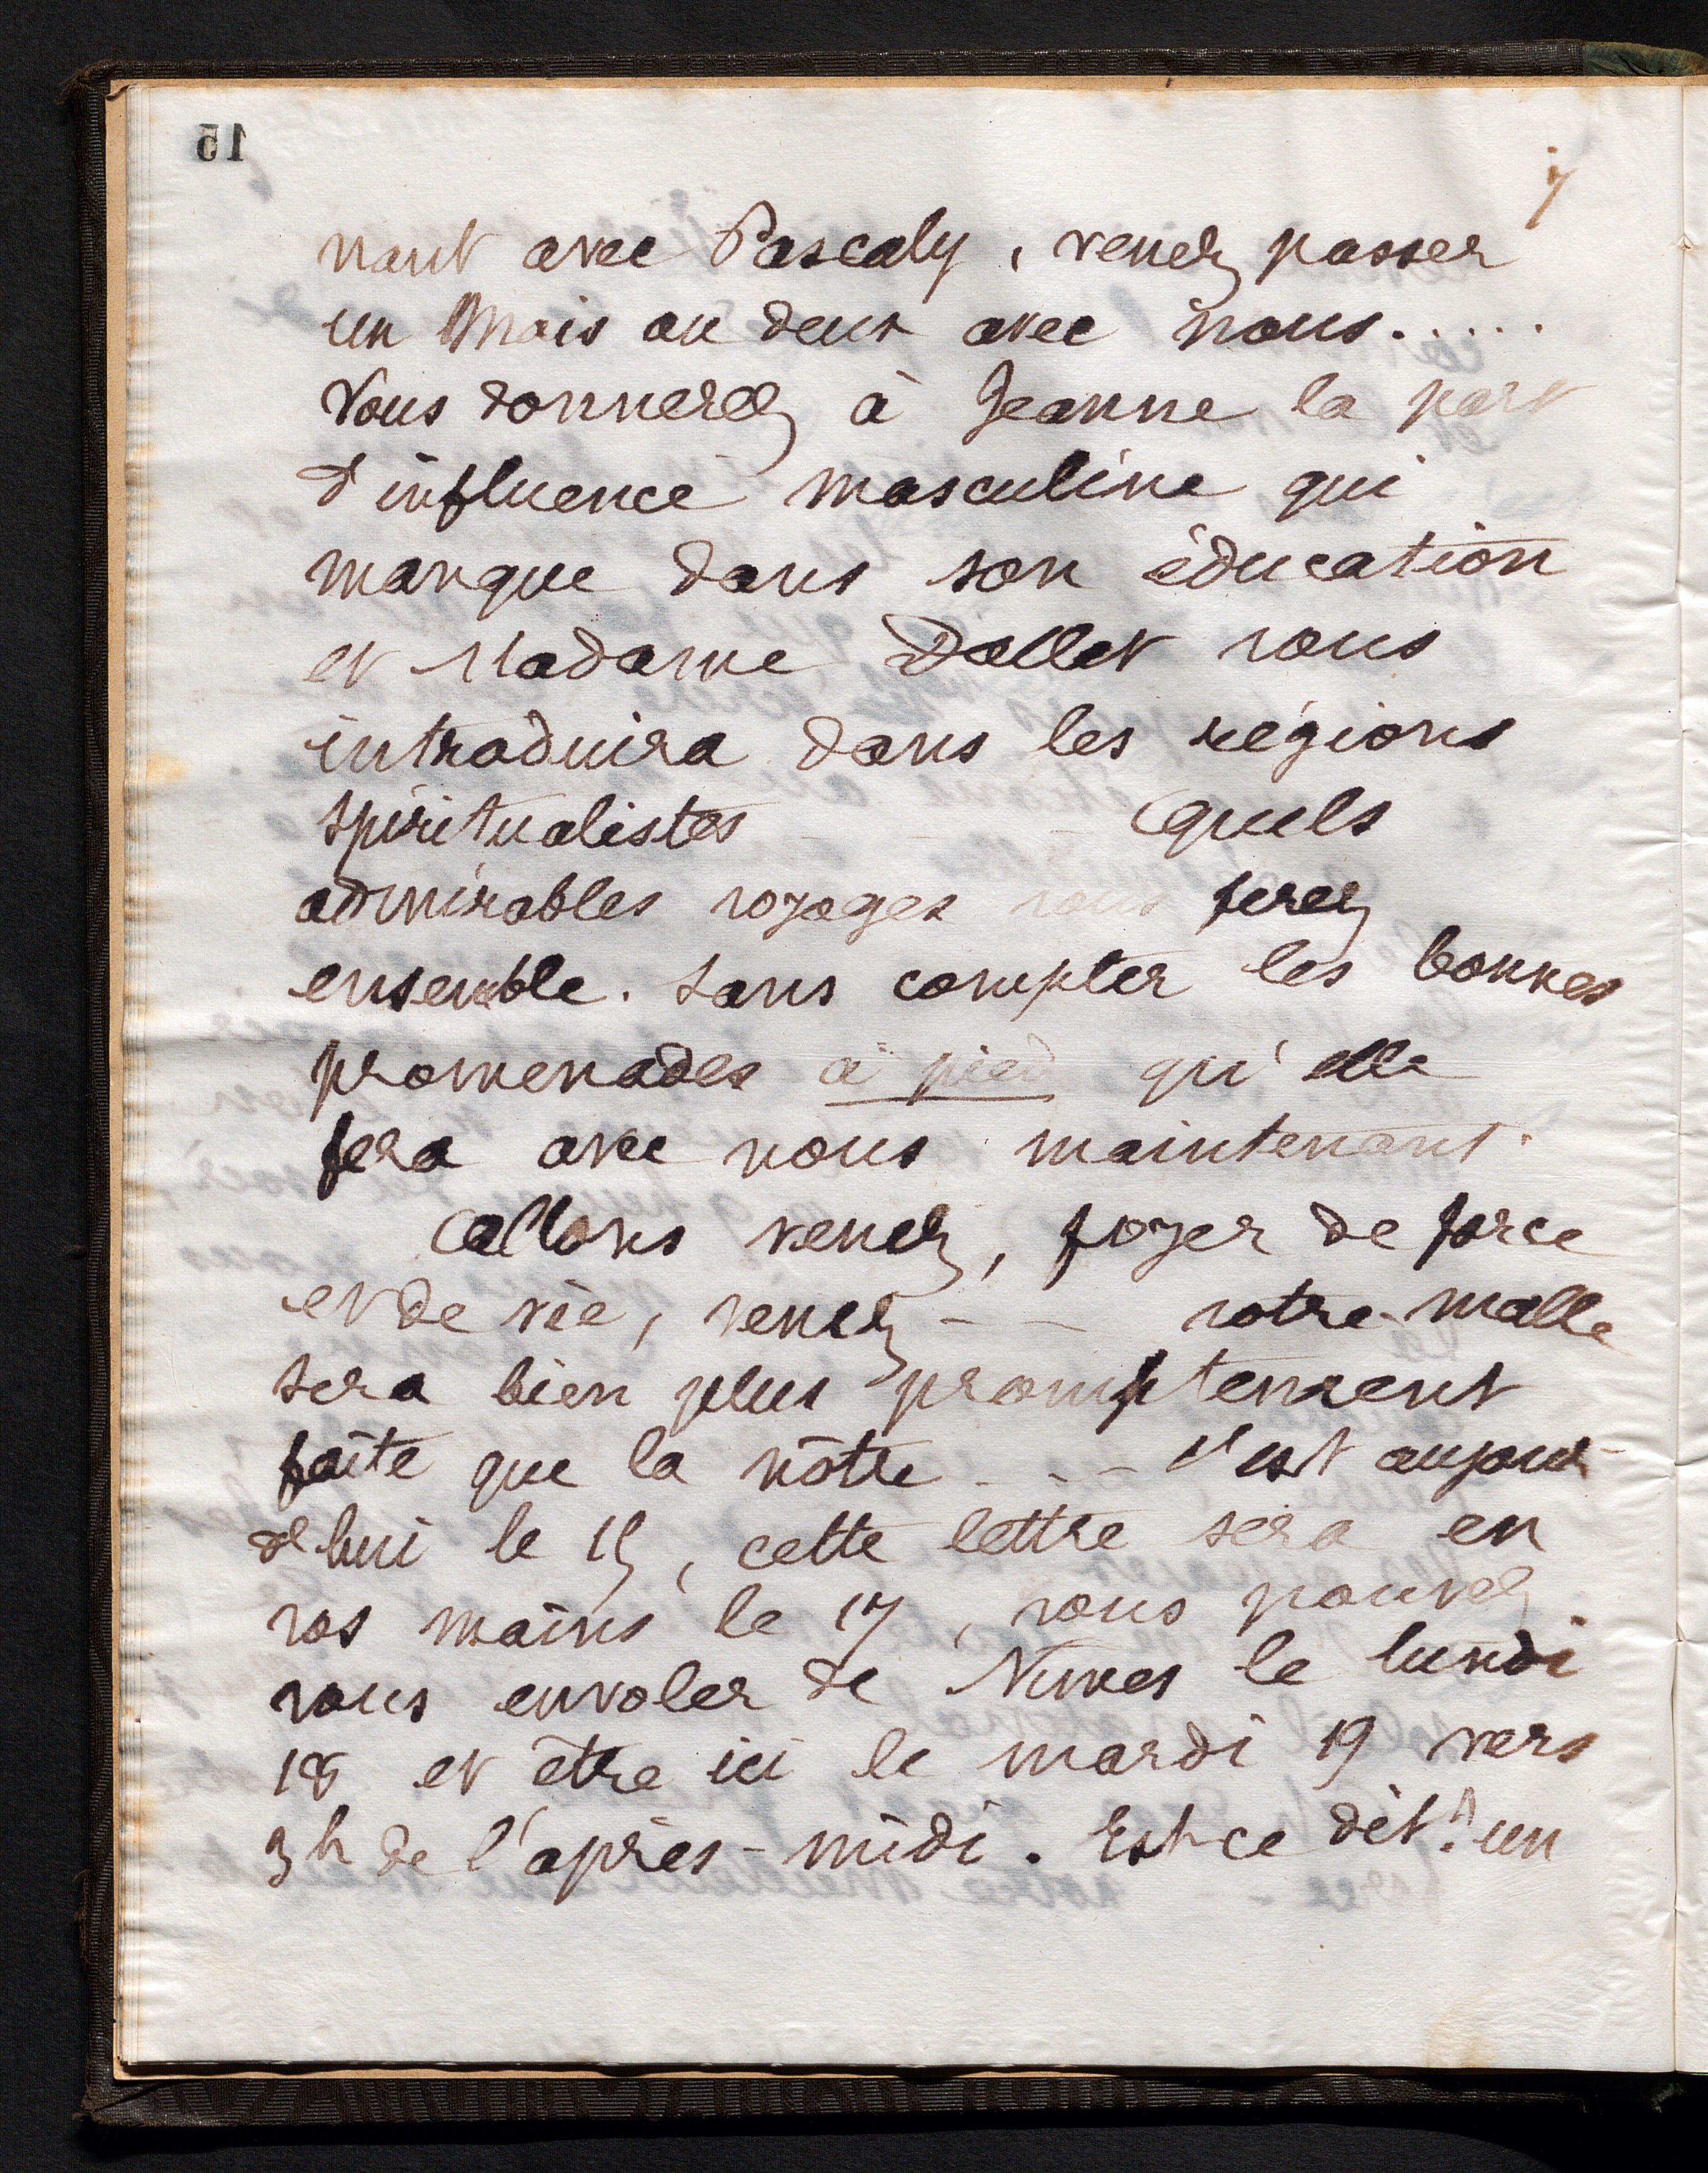 15
7
nant avec Pascaly, venez passer
un mois ou deux avec nous.....
Vous donnerez à Jeanne la part
d'influence masculine qui
manque dans son éducation
et Madame Dallet vous
introduira dans les régions
spiritualistes - - - quels
admirables voyages vous ferez
ensemble. Sans compter les bonnes
promenades à pied qu'elle
fera avec nous maintenant.
Allons venez, foyer de force
et de vie, venez - - votre malle
sera bien plus promptement
faite que la nôtre - - - c'est aujour-
d'hui le 15, cette lettre sera en
vos mains le 17, vous pouvez
vous envoler de Nimes le lundi
18 et être ici le mardi 19 vers
3h de l'après-midi. Est-ce dit? un